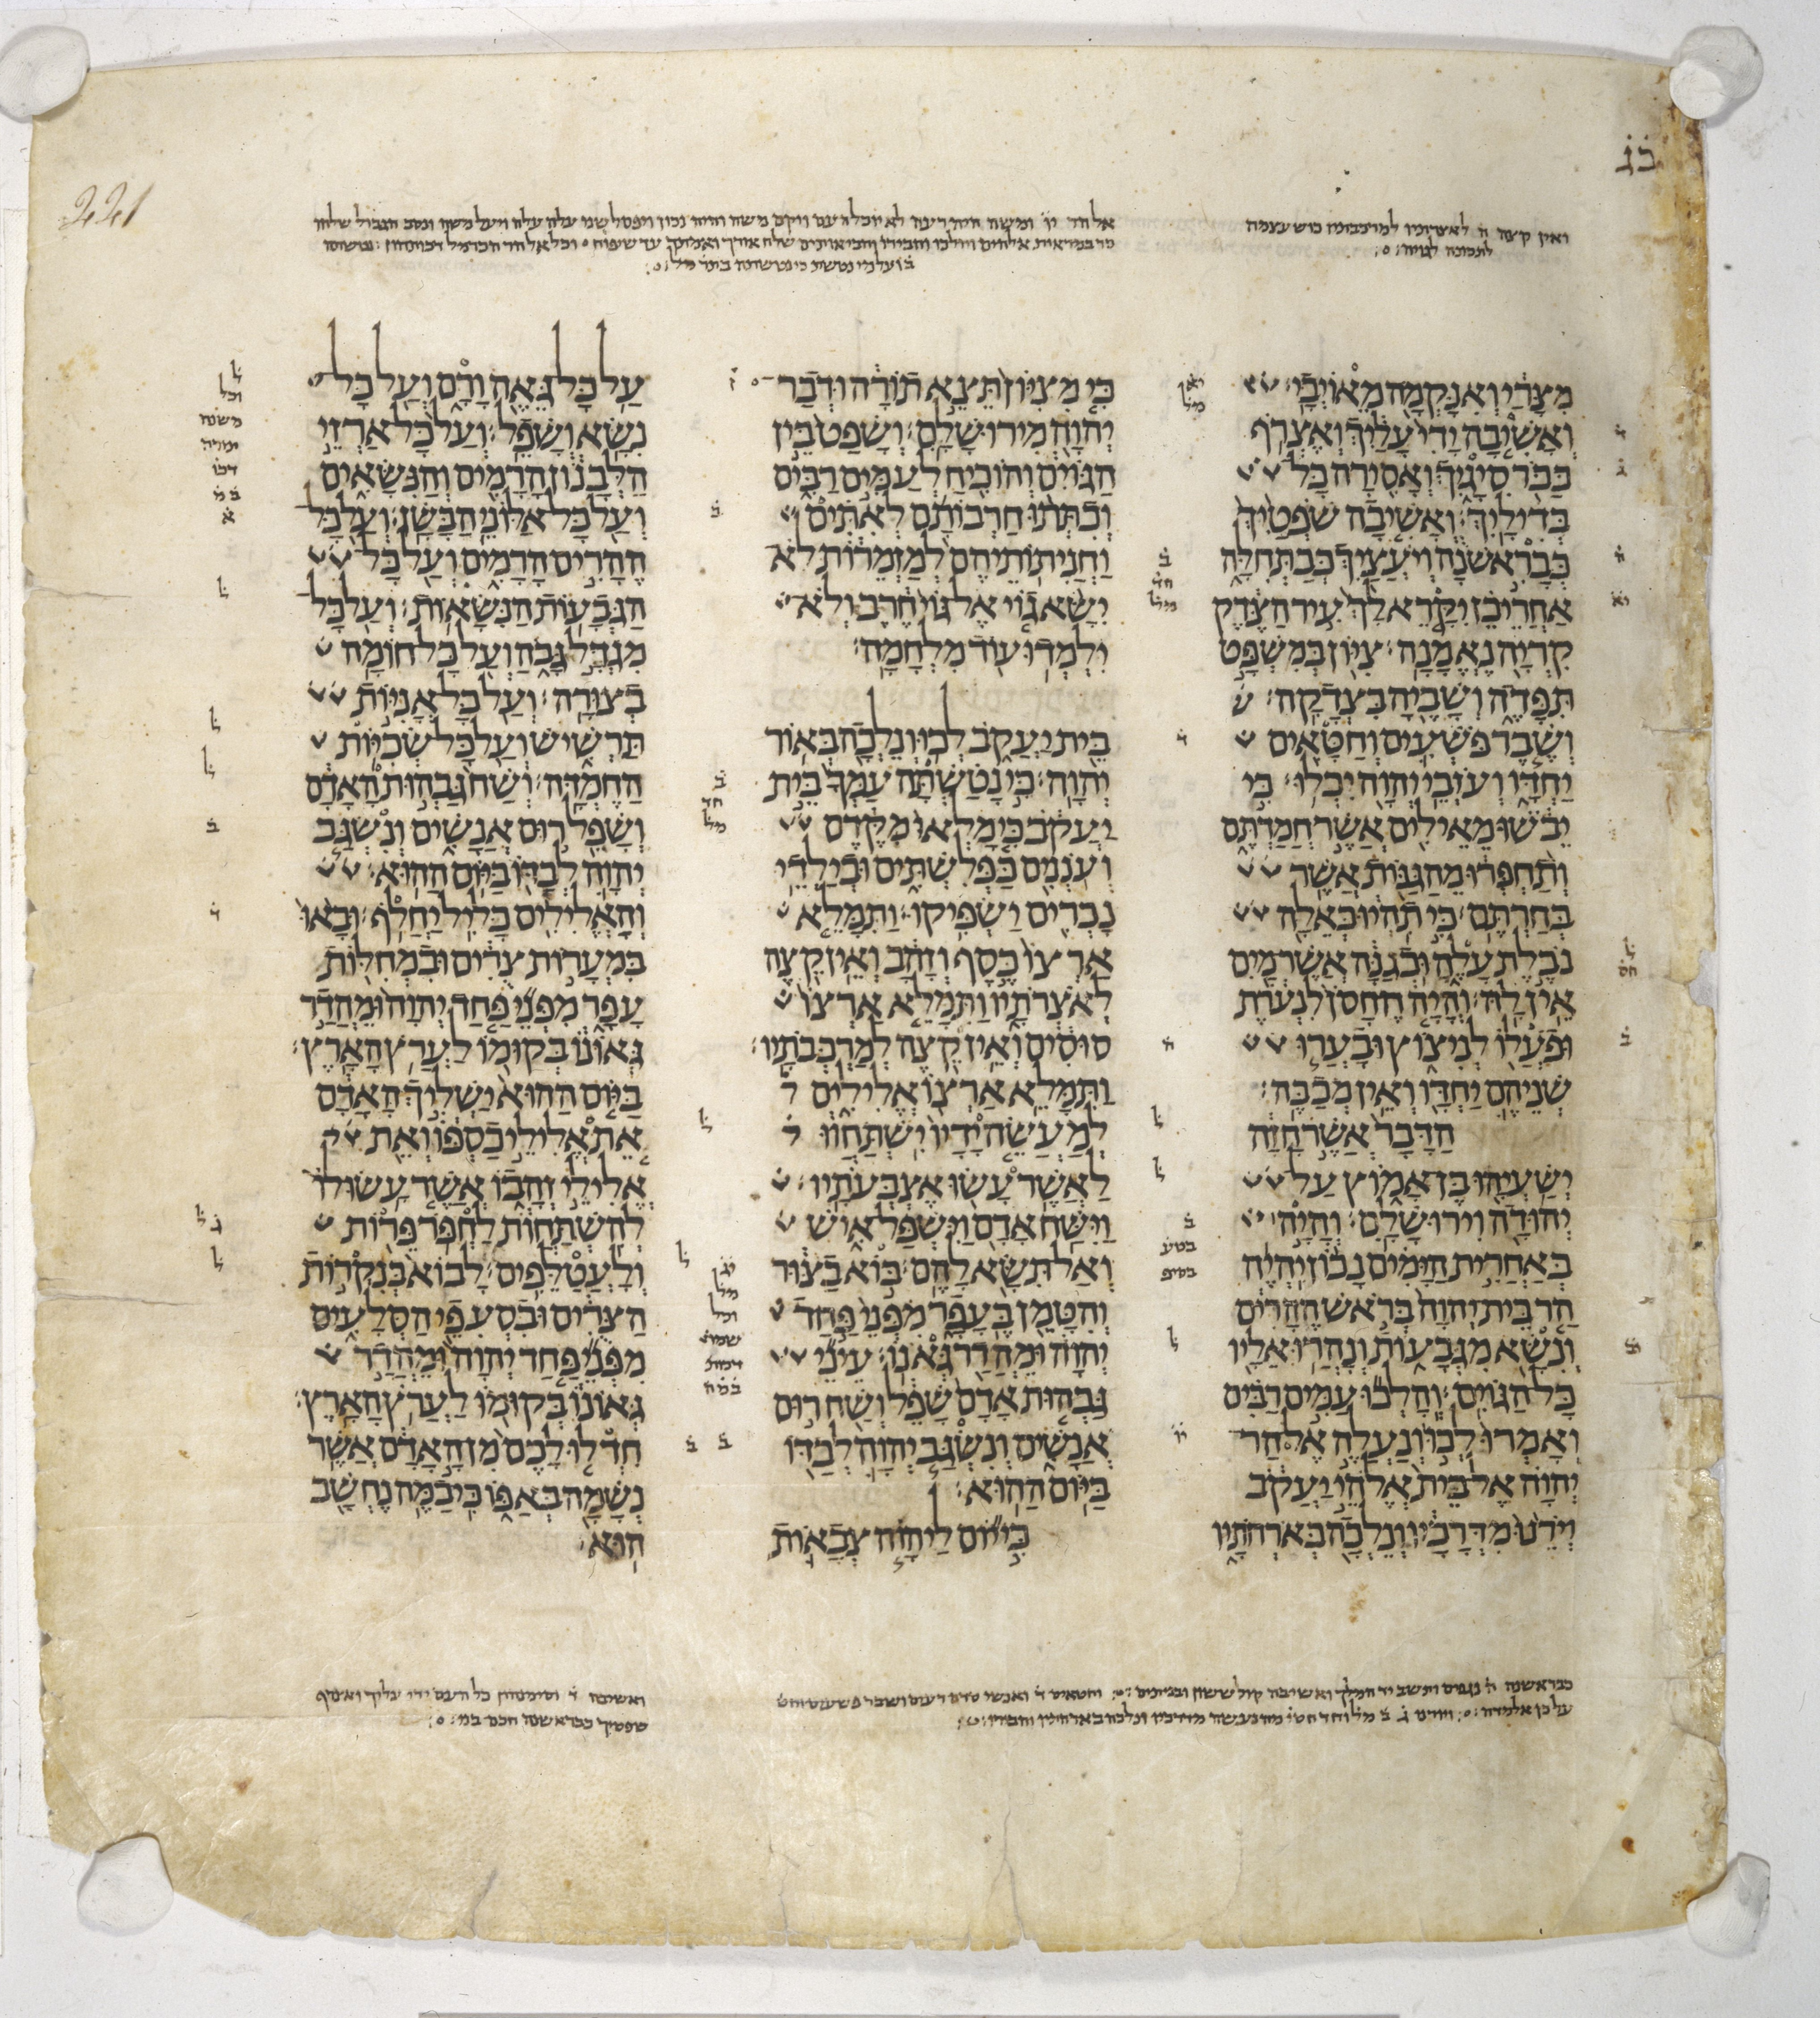 בג
221
ואין קצה ה לאצרתיו למרכבתיו כוש עצמה
לתכונה לגויה
מִצָּרַי וְאִנָּקְמָה מֵאוֹיְבָי׃
וְאָשִׁיבָה יָדִי עָלַיִךְ וְאֶצְרֹף
כַּבֹּר סִיגָיִךְ וְאָסִירָה כָּל
בְּדִילָיִךְ׃ וְאָשִׁיבָה שֹׁפְטַיִךְ
כְּבָרִאשֹׁנָה וְיֹעֲצַיִךְ כְּבַתְּחִלָּה
אַחֲרֵי כֵן יִקָּרֵא לָךְ עִיר הַצֶּדֶק
קִרְיָה נֶאֱמָנָה׃ צִיּוֹן בְּמִשְׁפָּט
תִּפָּדֶה וְשָׁבֶיהָ בִּצְדָקָה׃
וְשֶׁבֶר פֹּשְׁעִים וְחַטָּאִים
יַחְדָּו וְעֹזְבֵי יְהוָה יִכְלוּ׃ כִּי
יֵבֹשׁוּ מֵאֵילִים אֲשֶׁר חֲמַדְתֶּם
וְתַחְפְּרוּ מֵהַגַּנּוֹת אֲשֶׁר
בְּחַרְתֶּם׃ כִּי תִהְיוּ כְּאֵלָה
נֹבֶלֶת עָלֶהָ וּכְגַנָּה אֲשֶׁר מַיִם
אֵין לָהּ׃ וְהָיָה הֶחָסֹן לִנְעֹרֶת
וּפֹעֲלוֹ לְנִיצוֹץ וּבָעֲרוּ
שְׁנֵיהֶם יַחְדָּו וְאֵין מְכַבֶּה׃
הַדָּבָר אֲשֶׁר חָזָה
יְשַׁעְיָהוּ בֶּן אָמוֹץ עַל
יְהוּדָה וִירוּשָׁלִָם׃ וְהָיָה
בְּאַחֲרִית הַיָּמִים נָכוֹן יִהְיֶה
הַר בֵּית יְהוָה בְּרֹאשׁ הֶהָרִים
וְנִשָּׂא מִגְּבָעוֹת וְנָהֲרוּ אֵלָיו
כָּל הַגּוֹיִם׃ וְהָלְכוּ עַמִּים רַבִּים
וְאָמְרוּ לְכוּ וְנַעֲלֶה אֶל הַר
יְהוָה אֶל בֵּית אֱלֹהֵי יַעֲקֹב
וְיֹרֵנוּ מִדְּרָכָיו וְנֵלְכָה בְּאֹרְחֹתָיו
כִּי מִצִּיּוֹן תֵּצֵא תוֹרָה וּדְבַר
יְהוָה מִירוּשָׁלִָם׃ וְשָׁפַט בֵּין
הַגּוֹיִם וְהוֹכִיחַ לְעַמִּים רַבִּים
וְכִתְּתוּ חַרְבוֹתָם לְאִתִּים
וַחֲנִיתוֹתֵיהֶם לְמַזְמֵרוֹת לֹא
יִשָּׂא גוֹי אֶל גּוֹי חֶרֶב וְלֹא
יִלְמְדוּ עוֹד מִלְחָמָה׃
בֵּית יַעֲקֹב לְכוּ וְנֵלְכָה בְּאוֹר
יְהוָה׃ כִּי נָטַשְׁתָּה עַמְּךָ בֵּית
יַעֲקֹב כִּי מָלְאוּ מִקֶּדֶם
וְעֹנְנִים כַּפְּלִשְׁתִּים וּבְיַלְדֵי
נָכְרִים יַשְׂפִּיקוּ׃ וַתִּמָּלֵא
אַרְצוֹ כֶּסֶף וְזָהָב וְאֵין קֵצֶה
לְאֹצְרֹתָיו וַתִּמָּלֵא אַרְצוֹ
סוּסִים וְאֵין קֵצֶה לְמַרְכְּבֹתָיו׃
וַתִּמָּלֵא אַרְצוֹ אֱלִילִים
לְמַעֲשֵׂה יָדָיו יִשְׁתַּחֲווּ
לַאֲשֶׁר עָשׂוּ אֶצְבְּעֹתָיו׃
וַיִּשַּׁח אָדָם וַיִּשְׁפַּל אִישׁ
וְאַל תִּשָּׂא לָהֶם׃ בּוֹא בַצּוּר
וְהִטָּמֵן בֶּעָפָר מִפְּנֵי פַּחַד
יְהוָה וּמֵהֲדַר גְּאֹנוֹ׃ עֵינֵי
גַּבְהוּת אָדָם שָׁפֵל וְשַׁח רוּם
אֲנָשִׁים וְנִשְׂגַּב יְהוָה לְבַדּוֹ
בַּיּוֹם הַהוּא׃
כִּי יוֹם לַיהוָה צְבָאוֹת
עַל כָּל גֵּאֶה וָרָם וְעַל כָּל
נִשָּׂא וְשָׁפֵל׃ וְעַל כָּל אַרְזֵי
הַלְּבָנוֹן הָרָמִים וְהַנִּשָּׂאִים
וְעַל כָּל אַלּוֹנֵי הַבָּשָׁן׃ וְעַל כָּל
הֶהָרִים הָרָמִים וְעַל כָּל
הַגְּבָעוֹת הַנִּשָּׂאוֹת׃ וְעַל כָּל
מִגְדָּל גָּבֹהַ וְעַל כָּל חוֹמָה
בְצוּרָה׃ וְעַל כָּל אֳנִיּוֹת
תַּרְשִׁישׁ וְעַל כָּל שְׂכִיּוֹת
הַחֶמְדָּה׃ וְשַׁח גַּבְהוּת הָאָדָם
וְשָׁפֵל רוּם אֲנָשִׁים וְנִשְׂגַּב
יְהוָה לְבַדּוֹ בַּיּוֹם הַהוּא׃
וְהָאֱלִילִים כָּלִיל יַחֲלֹף׃ וּבָאוּ
בִּמְעָרוֹת צֻרִים וּבִמְחִלּוֹת
עָפָר מִפְּנֵי פַּחַד יְהוָה וּמֵהֲדַר
גְּאוֹנוֹ בְּקוּמוֹ לַעֲרֹץ הָאָרֶץ׃
בַּיּוֹם הַהוּא יַשְׁלִיךְ הָאָדָם
אֵת אֱלִילֵי כַסְפּוֹ וְאֵת
אֱלִילֵי זְהָבוֹ אֲשֶׁר עָשׂוּ לוֹ
לְהִשְׁתַּחֲוֹת לַחְפֹּר פֵּרוֹת
וְלָעֲטַלֵּפִים׃ לָבוֹא בְּנִקְרוֹת
הַצֻּרִים וּבִסְעִפֵי הַסְּלָעִים
מִפְּנֵי פַּחַד יְהוָה וּמֵהֲדַר
גְּאוֹנוֹ בְּקוּמוֹ לַעֲרֹץ הָאָרֶץ׃
חִדְלוּ לָכֶם מִן הָאָדָם אֲשֶׁר
נְשָׁמָה בְּאַפּוֹ כִּי בַמֶּה נֶחְשָׁב
הוּא׃